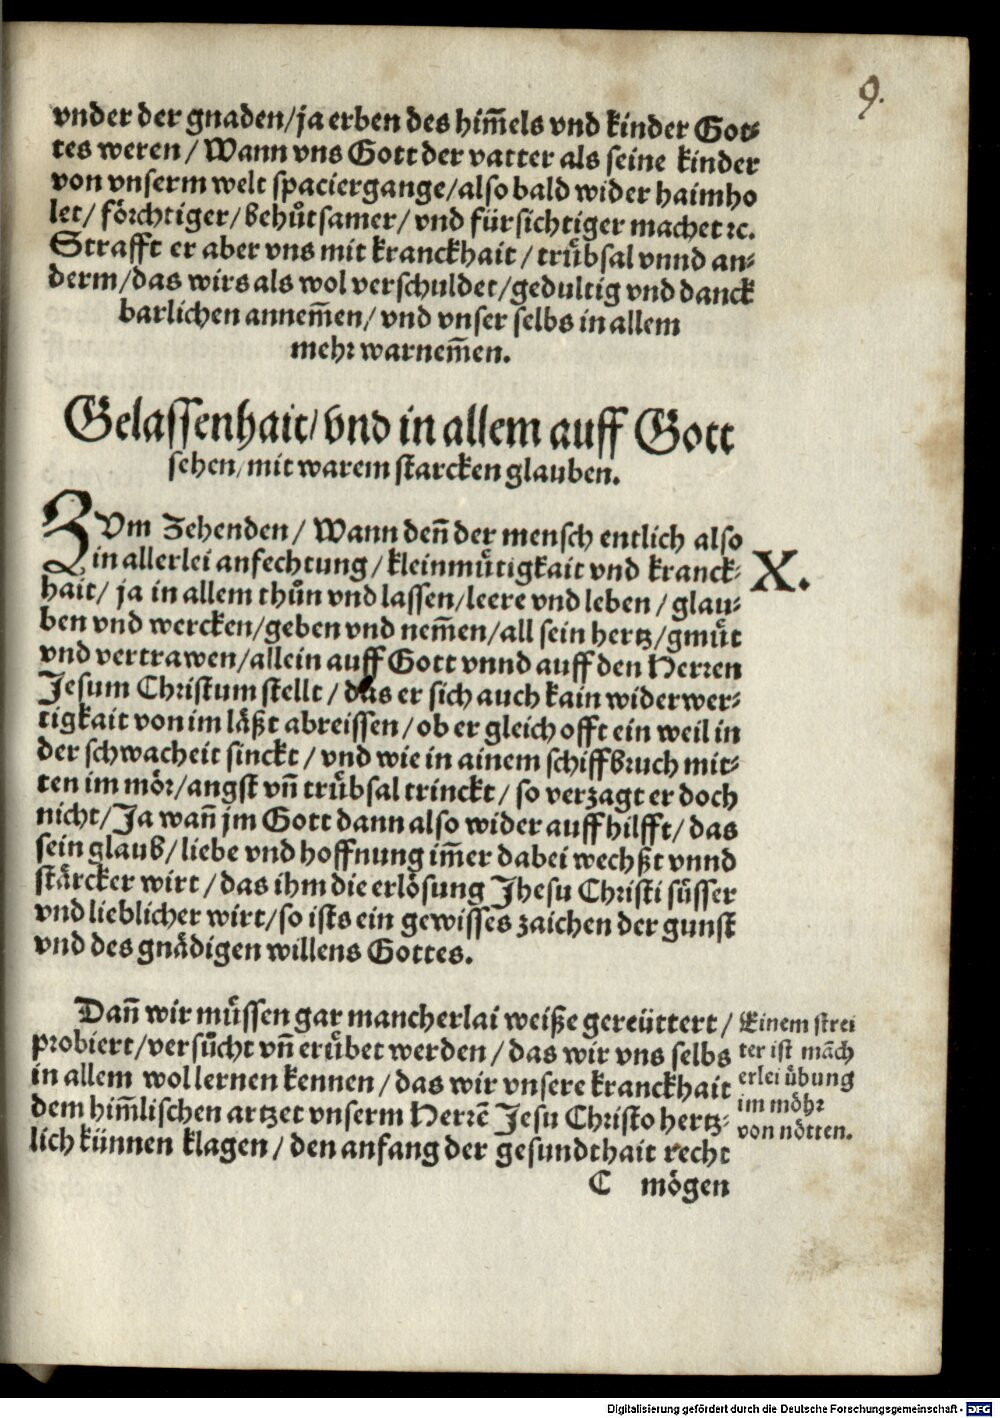 9.
vnder der gnaden/ja erben des him̄els vnd kinder Got⸗
tes weren/Wann vns Gott der vatter als seine kinder
von vnserm welt spaciergange/also bald wider haimho
let/ förchtiger/behuͤtsamer/ vnd fürsichtiger machet ꝛc.
Strafft er aber vns mit kranckhait/truͤbsal vnnd an⸗
derm/das wirs als wol verschuldet/gedultig vnd danck
barlichen annem̄en/ vnd vnser selbs in allem
mehr warnem̄en.
Gelassenhait/vnd in allem auff Gott
sehen/mit warem starcken glauben.
ZVm Zehenden/ Wann den̄ der mensch entlich also
in allerlei anfechtung/kleinmuͤtigkait vnd kranck⸗
X.
hait/ ja in allem thuͦn vnd lassen/leere vnd leben/glau⸗
ben vnd wercken/geben vnd nem̄en/all sein hertz/gmuͤt
vnd vertrawen/allein auff Gott vnnd auff den Herren
Jesum Christum stellt/das er sich auch kain widerwer⸗
tigkait von im laͤßt abreissen/ob er gleich offt ein weil in
der schwacheit sinckt/vnd wie in ainem schiffbruch mit⸗
ten im moͤr/angst vn̄ truͤbsal trinckt/so verzagt er doch
nicht/Ja wan̄ jm Gott dann also wider auff hilfft/das
sein glaub/liebe vnd hoffnung im̄er dabei wechßt vnnd
staͤrcker wirt/das ihm die erloͤsung Jhesu Christi suͤsser
vnd lieblicher wirt/so ists ein gewisses zaichen der gunst
vnd des gnaͤdigen willens Gottes.
Dan̄ wir muͤssen gar mancherlai weiße gereüttert/
probiert/versuͦcht vn̄ eruͤbet werden/das wir vns selbs
in allem wol lernen kennen/das wir vnsere kranckhait
dem him̄lischen artzet vnserm Herrē Jesu Christo hertz⸗
lich künnen klagen/den anfang der gesundthait recht
Einem strei
ter ist māch
erlei uͤbung
im moͤhr
von noͤtten.
C moͤgen
Digitalisierung gefördert durch die Deutsche Forschungsgemeinschaft - DFG